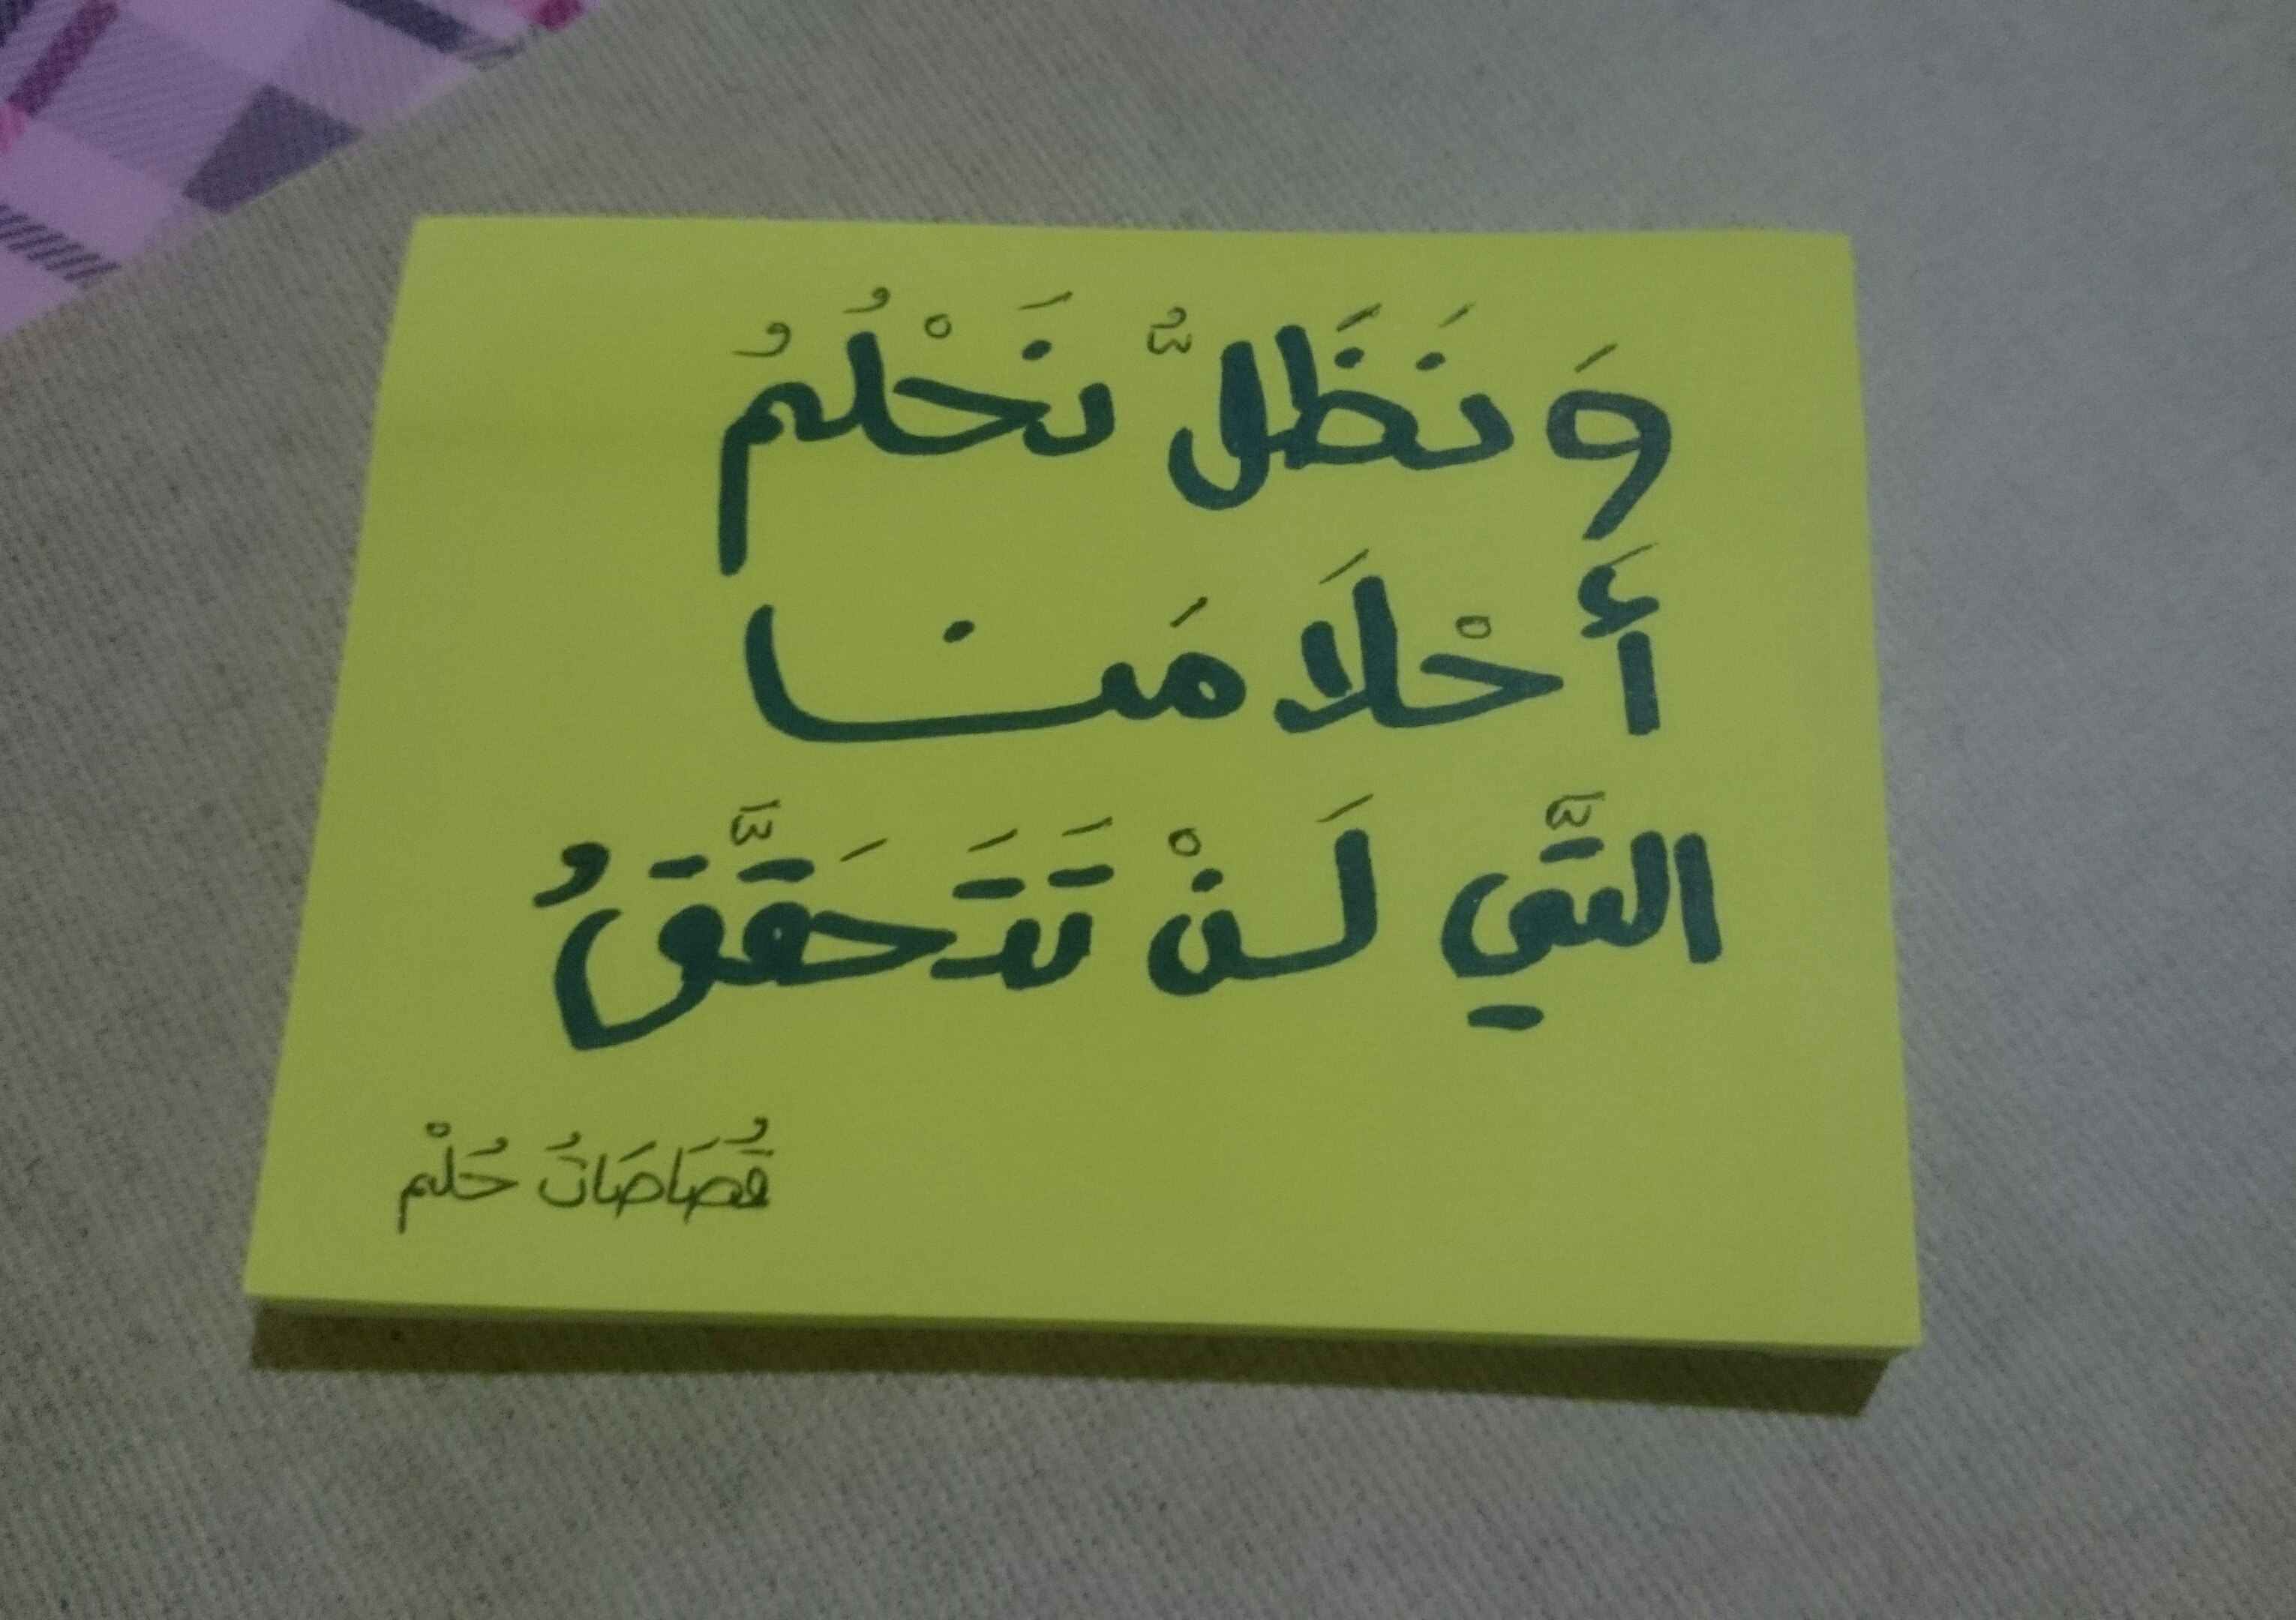 وَ نَظَلُّ نَحْلُمُ
أَحْلَامَنا
التَّي لَنْ تَتَحَقَّقُ
قُصَاصَاتُ حُلْم